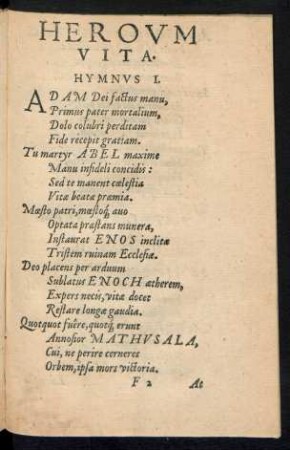 HEROVM
VITA.
HYMNVS I.
ADAM Dei factus manu,
Primus pater mortalium,
Dolo colubri perditam
Fide recepit gratiam.
Tu martyr ABEL maxime
Manu infideli concidis:
Sed te manent cælestia
Vitæ beatæ præmia.
Mœsto patri, mœstoq́; auo
Optata præstans munera,
Instaurat ENOS inclitæ
Tristem ruinam Ecclesiæ.
Deo placens per arduum
Sublatus ENOCH ætherem,
Expers necis, vitæ docet
Restare longæ gaudia.
Quotquot fuêre, quotq́; erunt
Annosior MATHVSALA,
Cui, ne perire cerneres
Orbem, ipsa mors victoria.
F 2 At